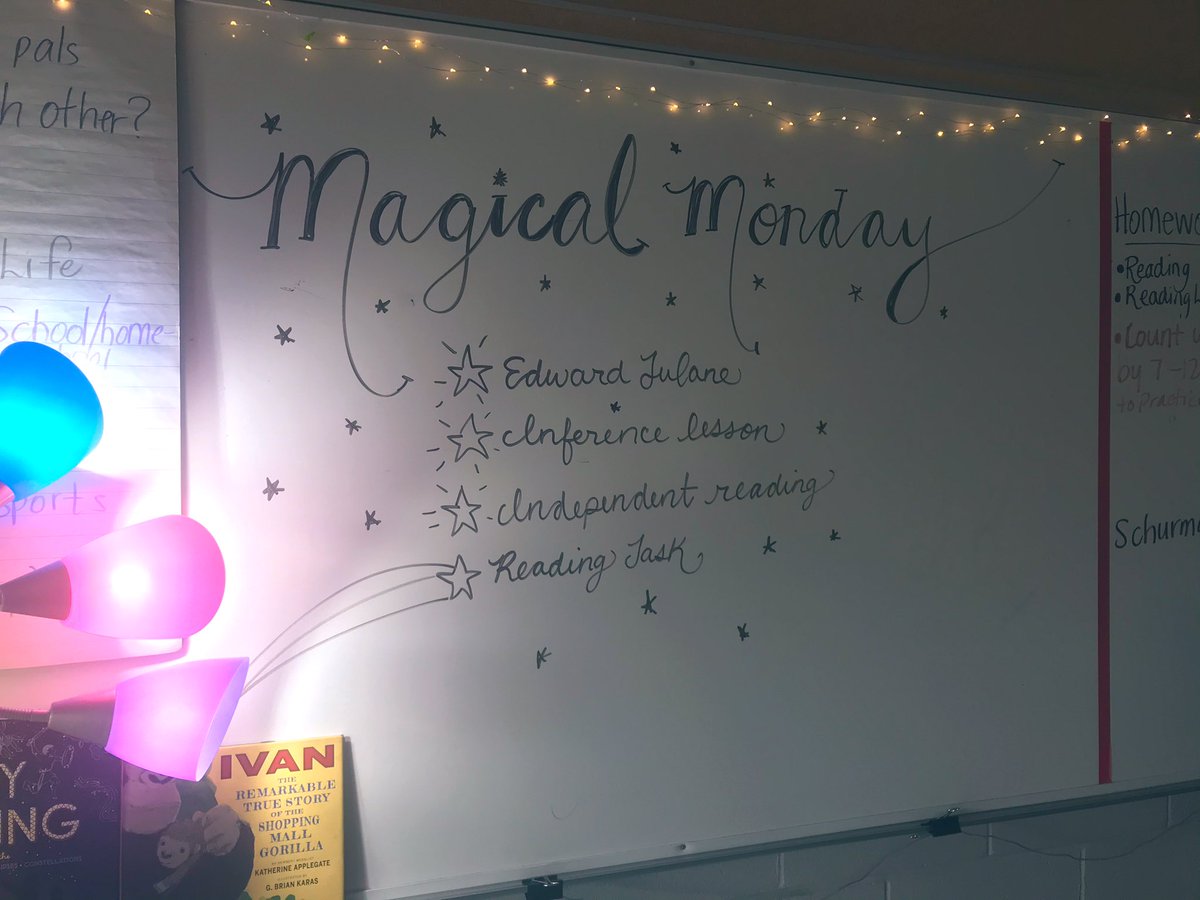 pals
h other?
Life
School/home-
Sports
Magical Monday
Edward Tulane
Inference lesson
Independent reading
Reading Task
Homewo
•Reading
•Reading
•Count
by 7-12
to practic
Schurm
IVAN
THE
REMARKABLE
TRUE STORY
OF THE
SHOPPING
MALL
GORILLA
KATHERINE APPLEGATE
G. BRIAN KARAS
Y
NG
CONSTELLATIONS